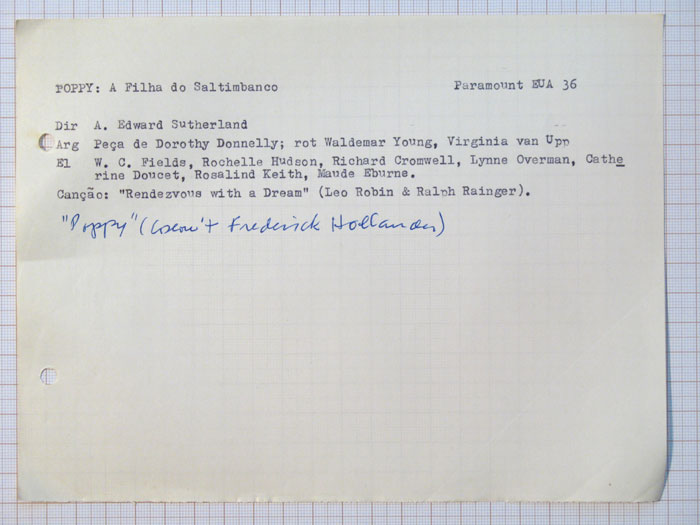 POPPY: A Filha do Saltimbanco Paramount EUA 36
Dir A. Edward Sutherland
Arg Peça de Dorothy Donnelly; rot Waldemar Young, Virginia van Upp
El W. C. Fields, Rochelle Hudson, Richard Cromwell, Lynne Overman, Cathe
rine Doucet, Rosalind Keith, Maude Eburne.
Canção: "Rendezvous with a Dream" (Leo Robin & Ralph Rainger).
"Poppy" ( Frederick Hollander)